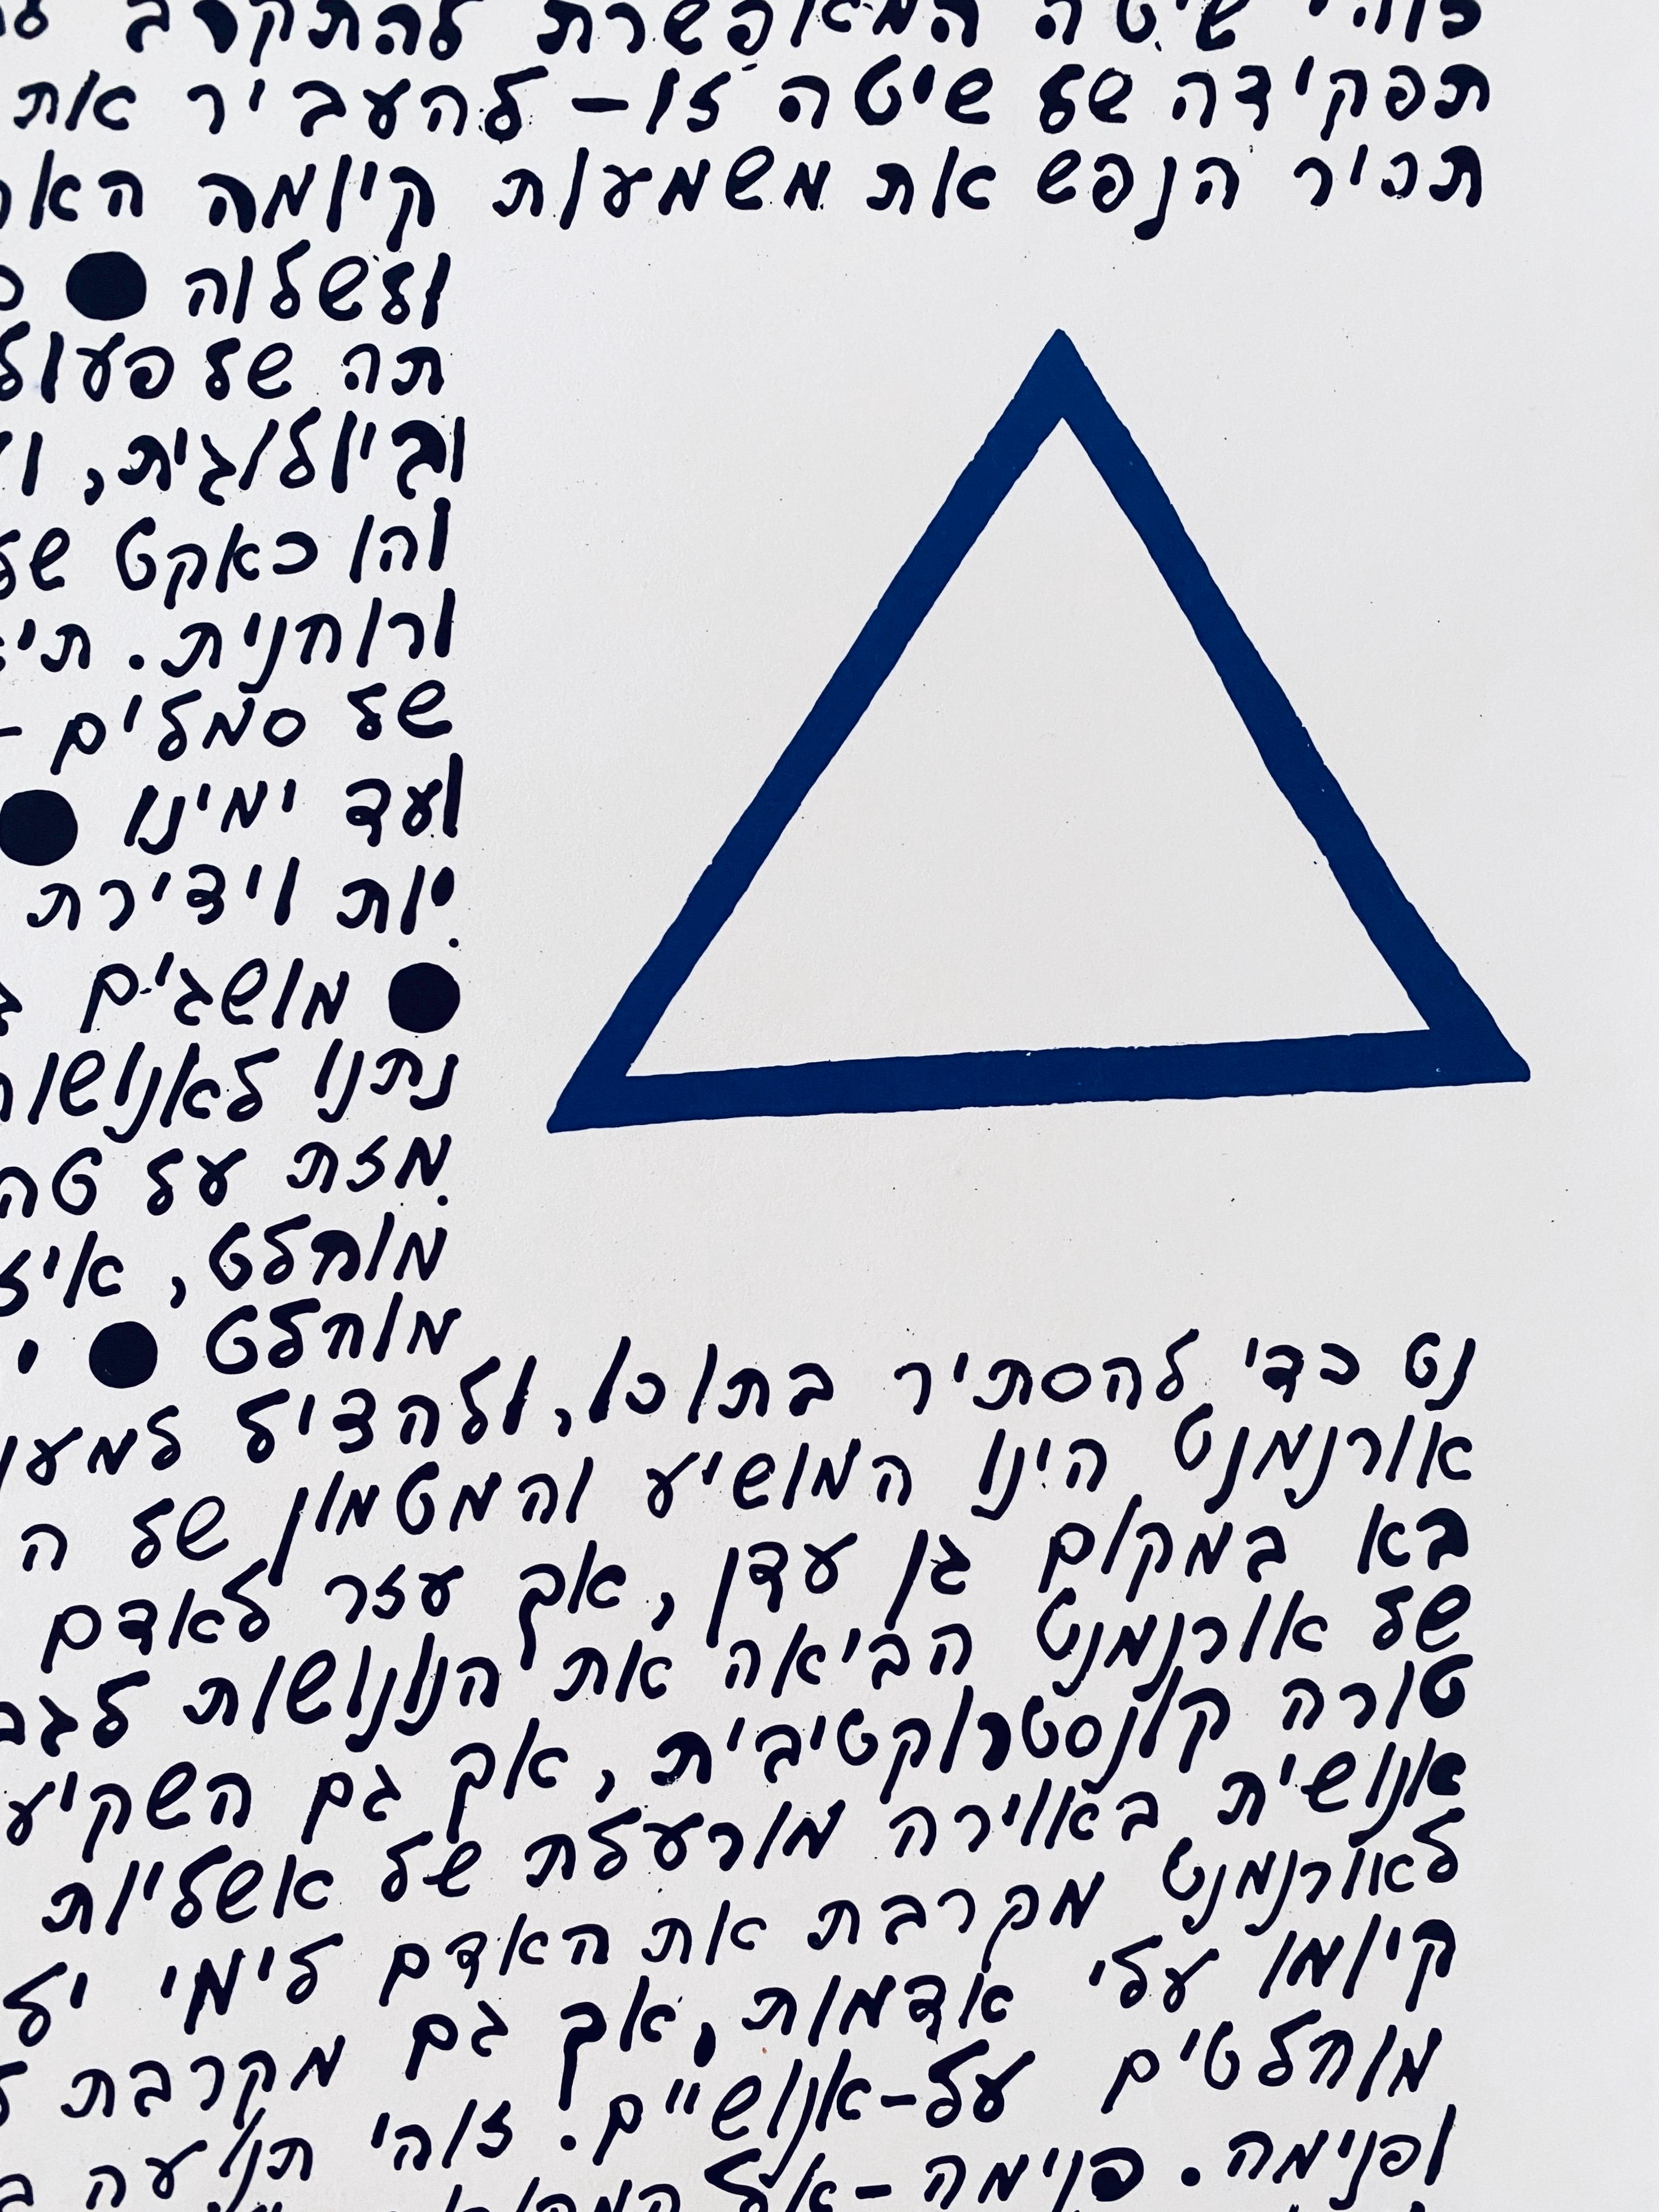 זוהי שיטה המאפשרת להתקרב
תפקידה של שיטה זו – להעביר את
תכיר הנפש את משמעות קיומה
ולשלוה ●
תה של פעול
וביולוגית,
והן כאקט של
ורוחנית.
של סמלים –
ועד ימינו ●
יות וידירת
● מושגים
נתנו לאנושות
מזת על טה
מוחלט,
מוחלט ●
נט כדי להסתיר בתוכו, ולהציל למען
אורנמנט הינו המושיע והמטמון של ה
בא במקום גן עדן, אך עזר לאדם
של אורנמנט הביאה את הנונושות לגב
טורה קונסטרוקטיבית, אך גם השקיע
אנושית באווירה מורעלת של אשליות
לאורנמנט מקרבת את האדם לימי
קיומו עלי אדמות, אך גם מקרבת
מוחלטים על-אנושיים. זוהי תנועה
ופנימה. פנימה – אל